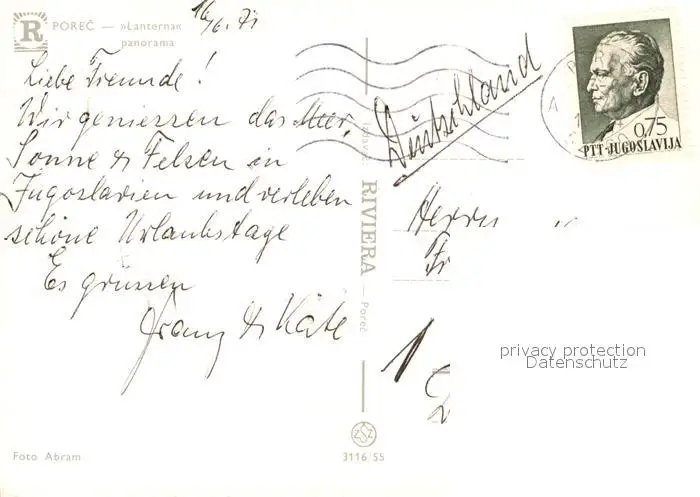 16/6.71
R POREČ — »Lanterna«
panorama
Liebe Freunde!
Wir geniessen das Meer,
Sonne & Felsen in
Jugoslavien und verleben
schöne Urlaubstage
Es grüssen
Franz & Käte
Deutschland
Herrn
Fr
1
RIVIERA — Poreč
0,75
PTT-JUGOSLAVIJA
privacy protection
Datenschutz
Foto Abram
3116 55